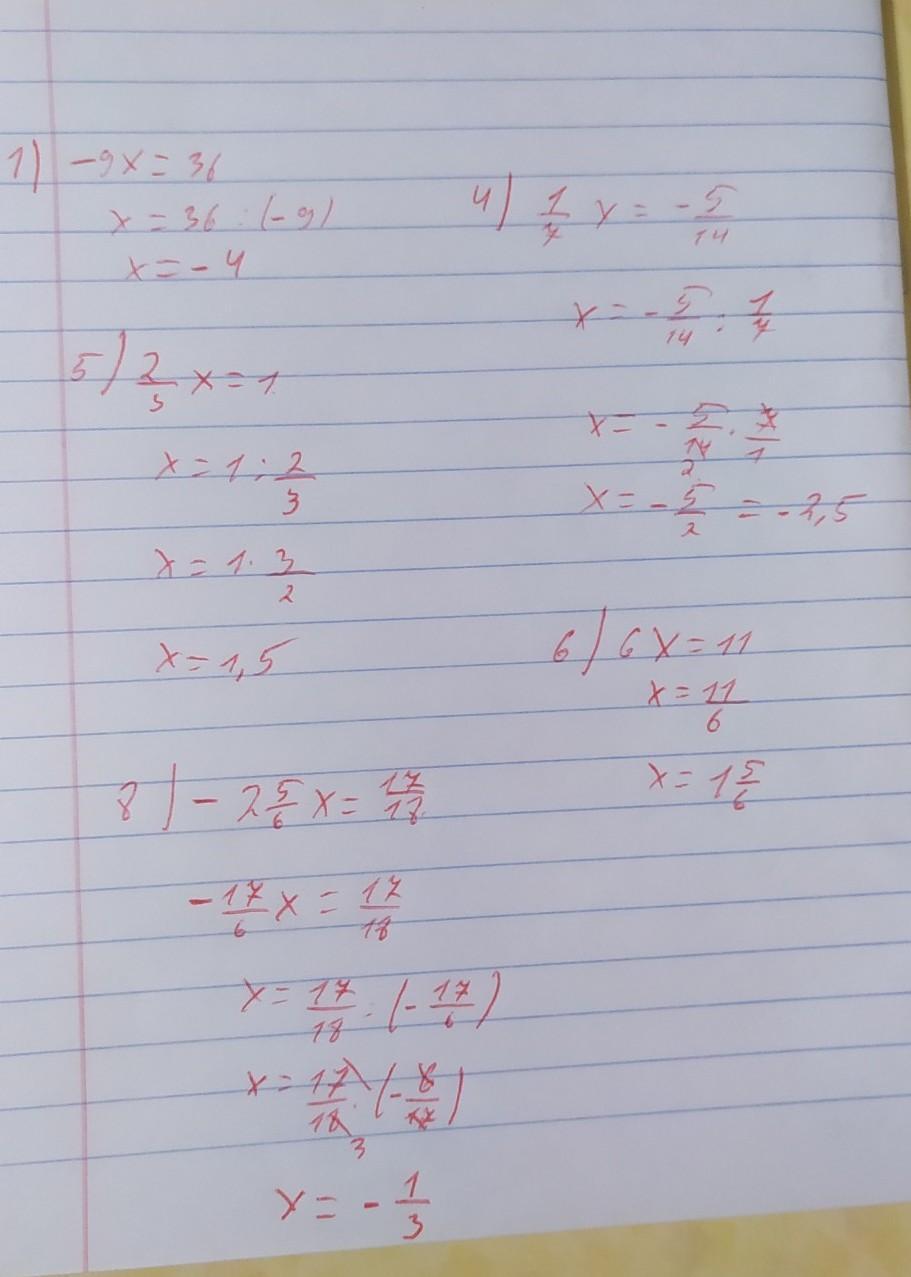 1) -9x = 36
x = 36 : (-9)
x = - 4
4) 1/7 x = - 5/14
x = - 5/14 : 1/7
x = - 5/14 · 7/1
2
x = - 5/2 = - 2,5
5) 2/3 x = 1
x = 1 : 2/3
x = 1 · 3/2
x = 1,5
6) 6x = 11
x = 11/6
x = 1 5/6
8) - 2 5/6 x = 17/18
- 17/6 x = 17/18
x = 17/18 : (- 17/6)
x = 17/18 · (- 6/17)
3
x = - 1/3